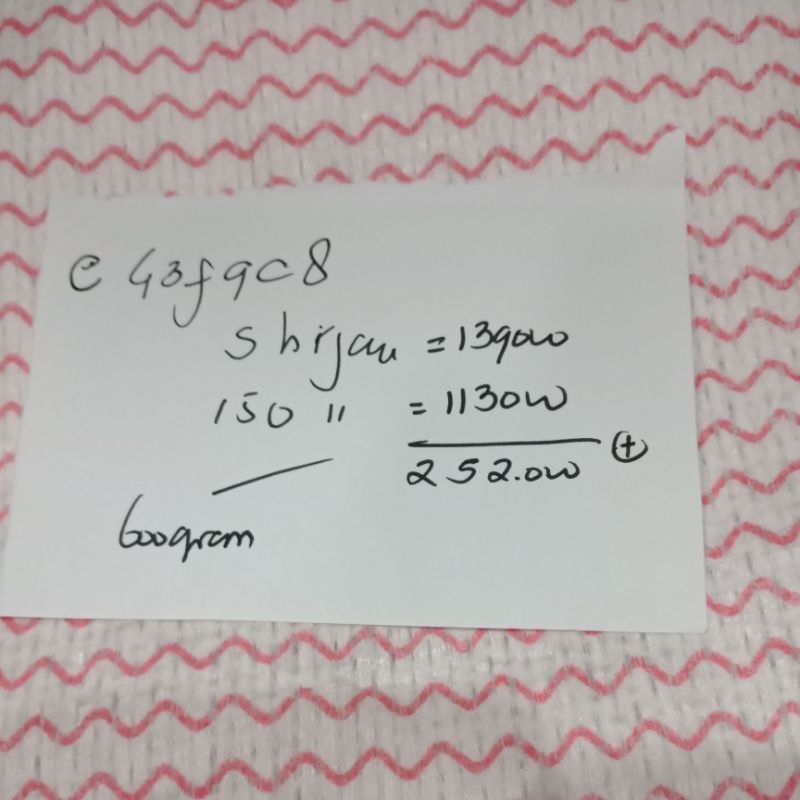 e 43f9c8
Shrjau = 139000
150 " = 113000
252.000 +
600gram